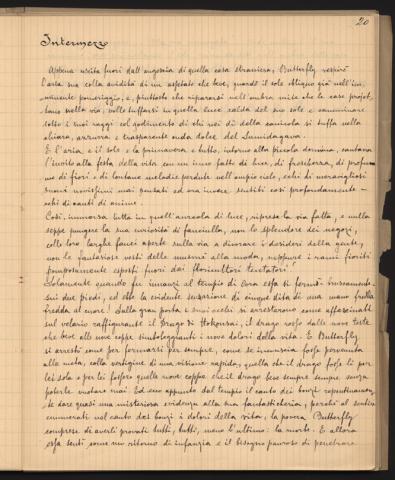 20
Intermezzo
Appena uscita fuori dall'angoscia di quella casa straniera, Butterfly respirò
l'aria sua colla avidità di un assetato che beve, quando il sole obliquo già nell'im-
minente pomeriggio, e, piuttosto che ripararsi nell'ombra mite che le case projet-
tano nella via, volle tuffarsi in quella luce calda del suo sole e camminare
sotto i suoi raggi col godimento di chi nei dì della canicola si tuffa nella
chiara, azzurra e trasparente onda dolce del Sumidagava.
E l'aria e il sole e la primavera e tutto, intorno alla piccola donnina, cantava
l'invito alla festa della vita con un inno fatto di luce, di freschezza, di profumo
di fiori e di lontane melodie perdute nell'ampio cielo, echi di meravigliosi
suoni novissimi mai pensati ed ora invece sentiti così profondamente -
echi di canti di anime.
Così, immersa tutta in quell'aureola di luce, riprese la via fatta, e nulla
seppe pungere la sua curiosità di fanciulla, non lo splendore dei negozi,
colle loro larghe fauci aperte sulla via a divorare i desideri della gente,
non le fantasiose vesti delle musmè alla moda, neppure i rami fioriti
pomposamente esposti fuori dai floricultori
Solamente quando fu innanzi al tempio di Cora essa si fermò bruscamente
sui due piedi, ed ebbe la evidente sensazione di cinque dita di una mano fredda
fredda al cuore! Sulla gran porta i suoi occhi si arrestarono come affascinati
sul velario raffigurante il Drago di Hokousai, il drago rosso dalle nove teste
che beve alle nove coppe simboleggianti i nove dolori della vita. E Butterfly
si arrestò come per fermarsi per sempre, come se innanzi fosse pervenuta
alla meta, colla vertigine di una visione rapida, quella che il drago fosse lì per
lei sola e per lei fossero quelle nove coppe che il drago beve sempre sempre senza
poterle vuotare mai! Ed ecco appunto dal tempio il canto dei bonzi repentinamente,
se dare quasi una misteriosa evidenza alla sua fantasticheria, perché al sentire
enumerati nel canto dai bonzi i dolori della vita, la povera Butterfly
comprese di averli provati tutti, tutti, meno l'ultimo: la morte. E allora
essa sentì come un ritorno di infanzia e il bisogno pauroso di penetrare